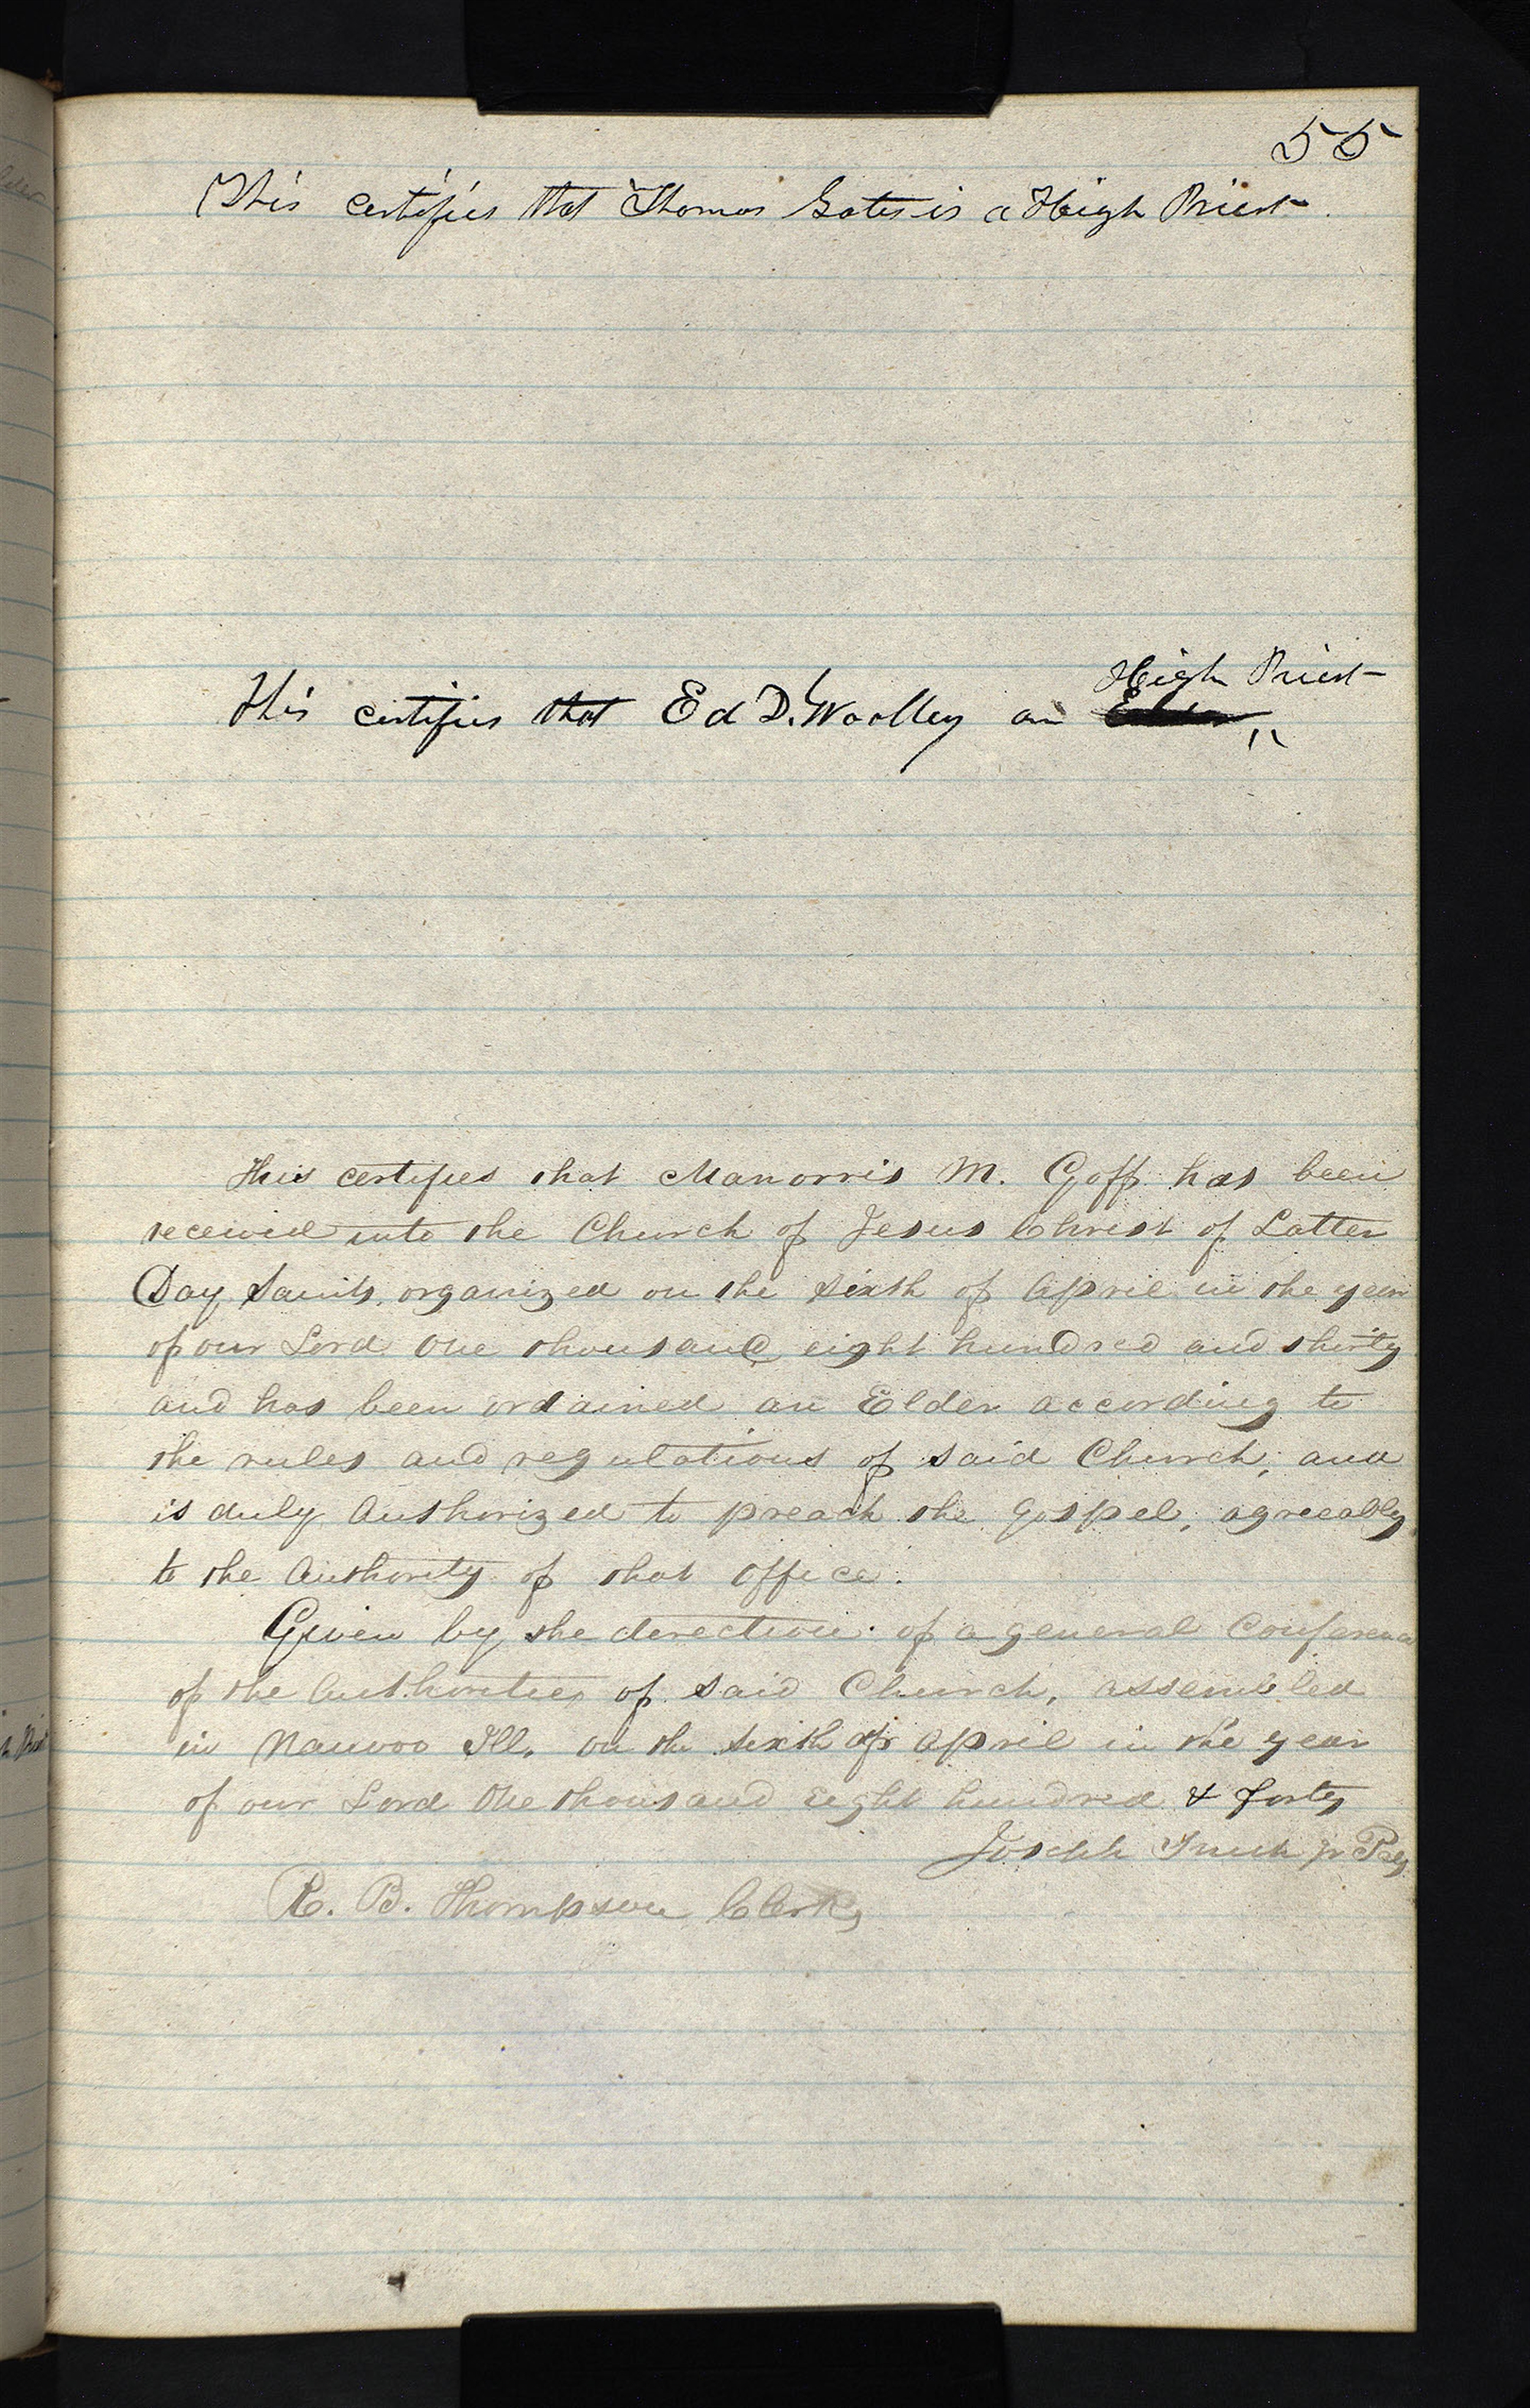 55
This certifies that Thomas Gates is a High Priest.
High Priest
This certifies that Ed D. Woolley an Elder
This certifies that Manorris M. Goff has been
received into the Church of Jesus Christ of Latter
Day Saints, organized on the sixth of April in the year
of our Lord One thousand eight hundred and thirty
and has been ordained an Elder according to
the rules and regulations of said Church, and
is duly Authorized to preach the Gospel, agreeably
to the Authority of that office.
Given by the direction of a general Conference
of the Authorities of said Church, assembled
in Nauvoo Ill. on the sixth of April in the year
of our Lord One thousand Eight hundred & forty
Joseph Smith Jr Pres
R. B. Thompson, Clerk,